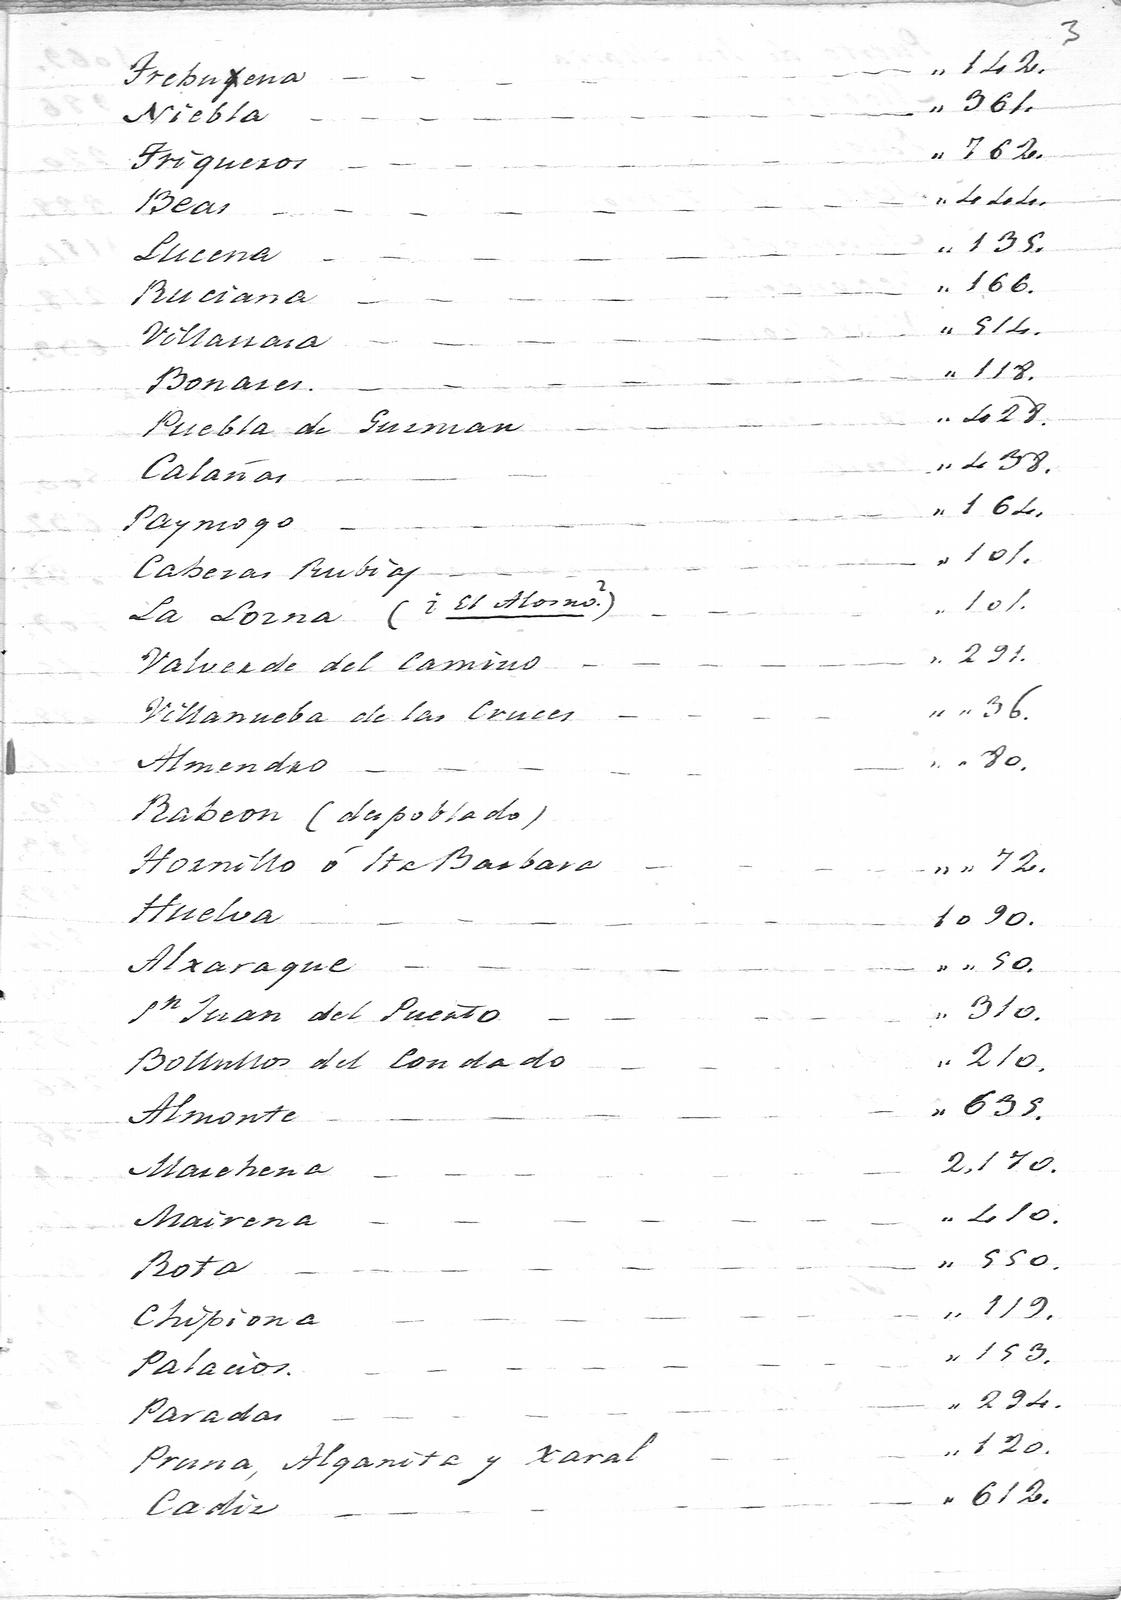 3
Trebuxena — — — — — — — „ 142.
Niebla — — — — — — — „ 361.
Trigueros — — — — — — — „ 762.
Beas — — — — — — — „ 444.
Lucena — — — — — — — „ 135.
Ruciana — — — — — — — „ 166.
Villarrasa — — — — — — — „ 514.
Bonares. — — — — — — — „ 118.
Puebla de Guzman — — — — „ 428.
Calañas — — — — „ 438.
Paymogo — — — — — — „ 164.
Cabezas Rubias — — — — — „ 101.
La Lozna (¿ El Alosno?) — — — — „ 101.
Valverde del Camino — — — — — „ 291.
Villanueba de las Cruces — — — — „ „ 36.
Almendro — — — — — — „ „ 80.
Rabeon (despoblado)
Hornillo ó Sta Barbara — — — — „ „ 72.
Huelva — — — — — — 1090.
Alxaraque — — — — — — „ „ 50.
Sn Juan del Puerto — — — — — „ 310.
Bollullos del Condado — — — — „ 210.
Almonte — — — — — — „ 635.
Marchena — — — — — — 2,170.
Mairena — — — — — — — „ 410.
Rota — — — — — — — „ 550.
Chipiona — — — — — — „ 119.
Palacios. — — — — — — — „ 153.
Paradas — — — — — — — „ 294.
Pruna, Alganita y Xaral — — — „ 120.
Cadiz — — — — — — „ 612.